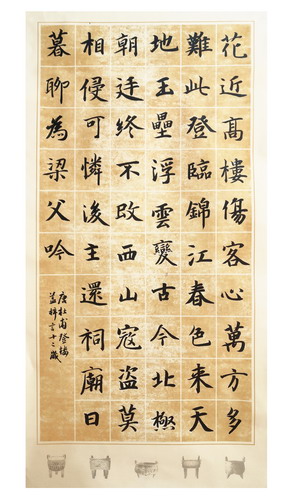 花近高樓傷客心萬方多
難此登臨錦江春色來天
地玉壘浮雲變古今北極
朝廷終不改西山寇盜莫
相侵可憐後主還祠廟日
暮聊為梁父吟
唐杜甫登樓
十二歲